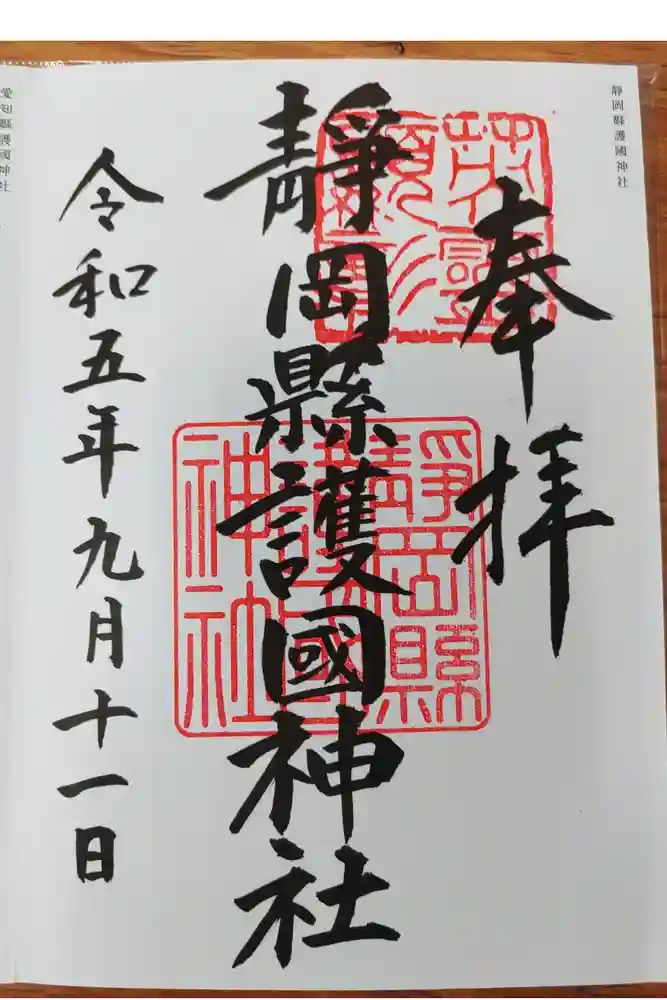 静岡縣護國神社
奉拝
静岡縣護國神社
静岡縣護國神社
令和五年九月十一日
愛知縣護國神社